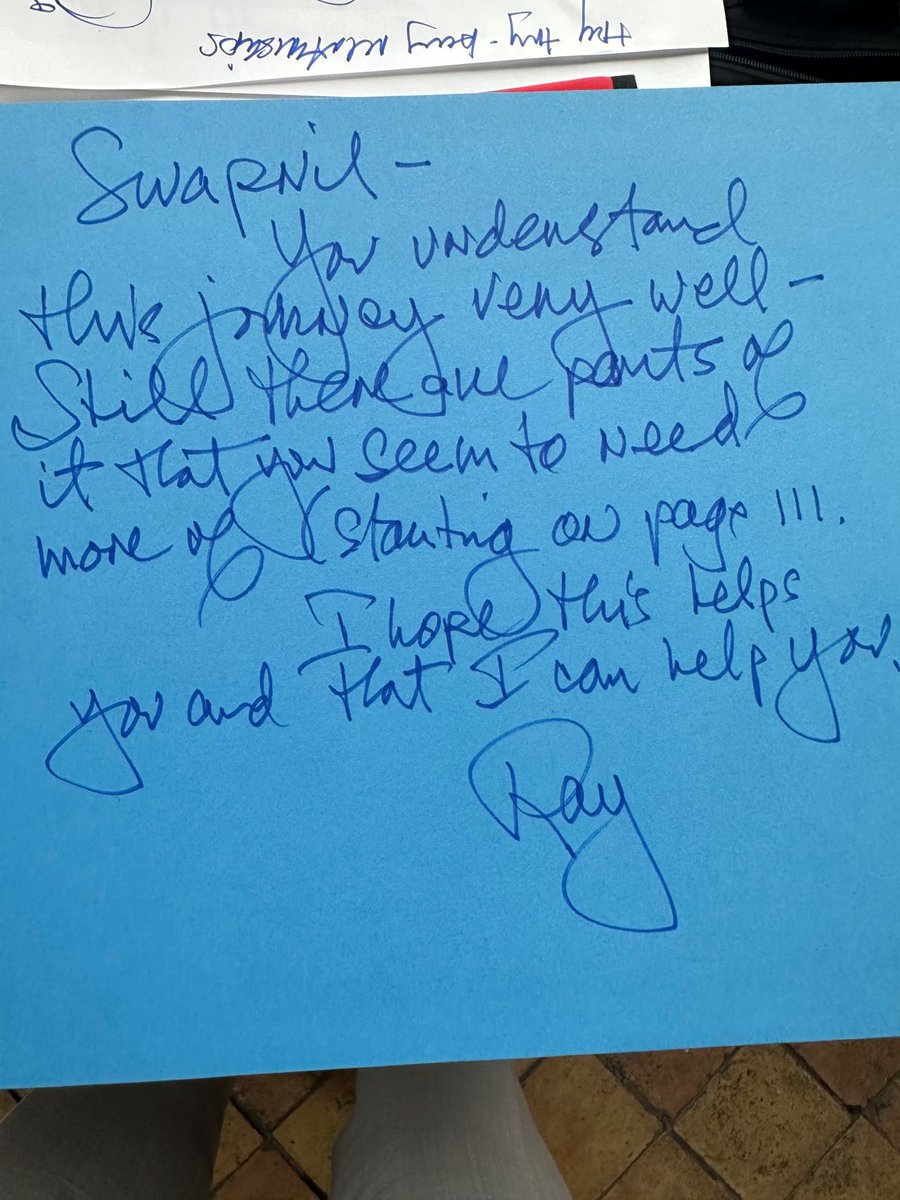 they try - being relationships
Swapnil -
You understand
this journey very well -
Still there are parts of
it that you seem to need
more of (starting on page 111.
I hope this helps
you and that I can help you.
Ray